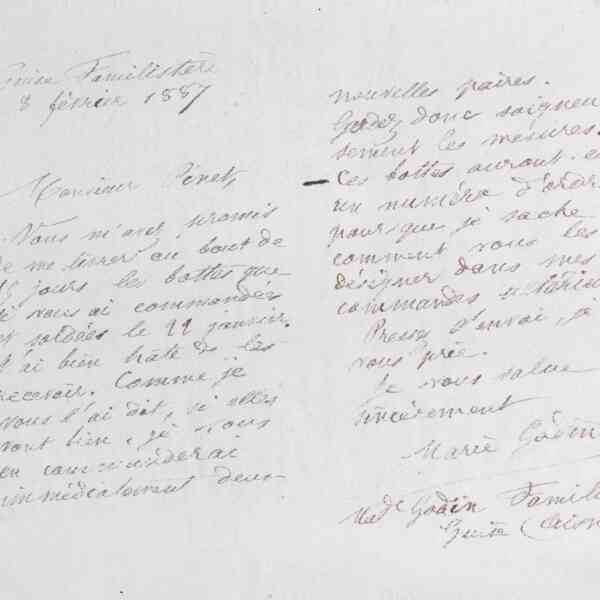 Guise Familistère
8 février 1887
Monsieur Pinet,
Vous m'avez promis
de me livrer au bout de
15 jours les bottes que
je vous ai commandées
et soldées le 11 janvier.
J'ai bien hâte de les
recevoir. Comme je
vous l'ai dit, si elles
vont bien, je vous
en commanderai
immédiatement deux
nouvelles paires.
Gardez donc soigneu
sement les mesures.
Ces bottes auront-e
un numéro d'ordr
pour que je sache
comment vous les
désigner dans mes
commandes
Pressez l'envoi, je
vous prie.
Je vous salue
sincèrement
Marie Godin
Made Godin Famili
Guise (Aisn